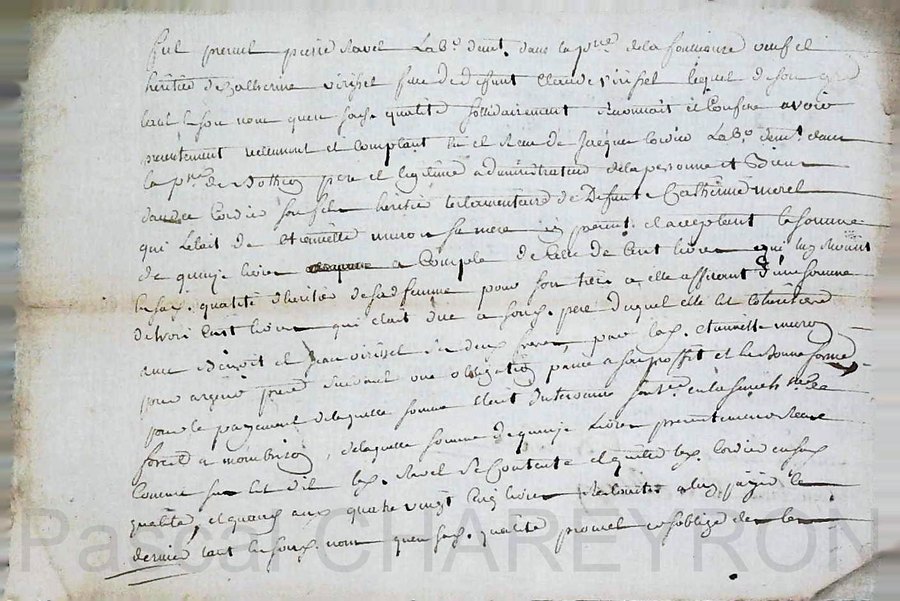 fut present pierre Ravel Lab.r dem.t dans la p.sse de la fouillouse veuf et
heritier de Catherine virissel fille de defunt Claude virissel lequel de son gré
tant en son nom qu'en sad. qualité sollidairement reconnait et confesse avoir
presentement reellement et comptant eu et Receu de Jacques Cordier Lab.r dem.t dans
la p.sse de pere et legitime administrateur de la personne et Biens
Cordier son fils heritier testamentaire de Deffunte Catherine morel
qui L'etait de etiennette muron sa mere icy present et acceptant la somme
de quinze livres a Compte de celle de Cent livres qui luy
en sa qualité d'heritier de sad femme pour son tiers a elle afferant d'une somme
de trois Cent livres qui etait due a son d. pere duquel elle est cohéritiere
avec Benoit et Jean virissel ses deux freres, par lad. etiennette muron
pour argent preté suivant une obligation passée a son proffit et en bonne forme
pour le payement de laquelle somme etait intervenue en la senéch.ée de
forest a montbrison, de laquelle somme de quinze livres presentement Receue
Comme sus est dit led. Ravel se Contente et quitte led. Cordier en sad
qualité, et quant aux quatre vingt cinq livres Restantes a luy payer ce
dernier tant en son d. nom qu'en sad. qualité promet et s'oblige de les
Pascal CHAREYRON